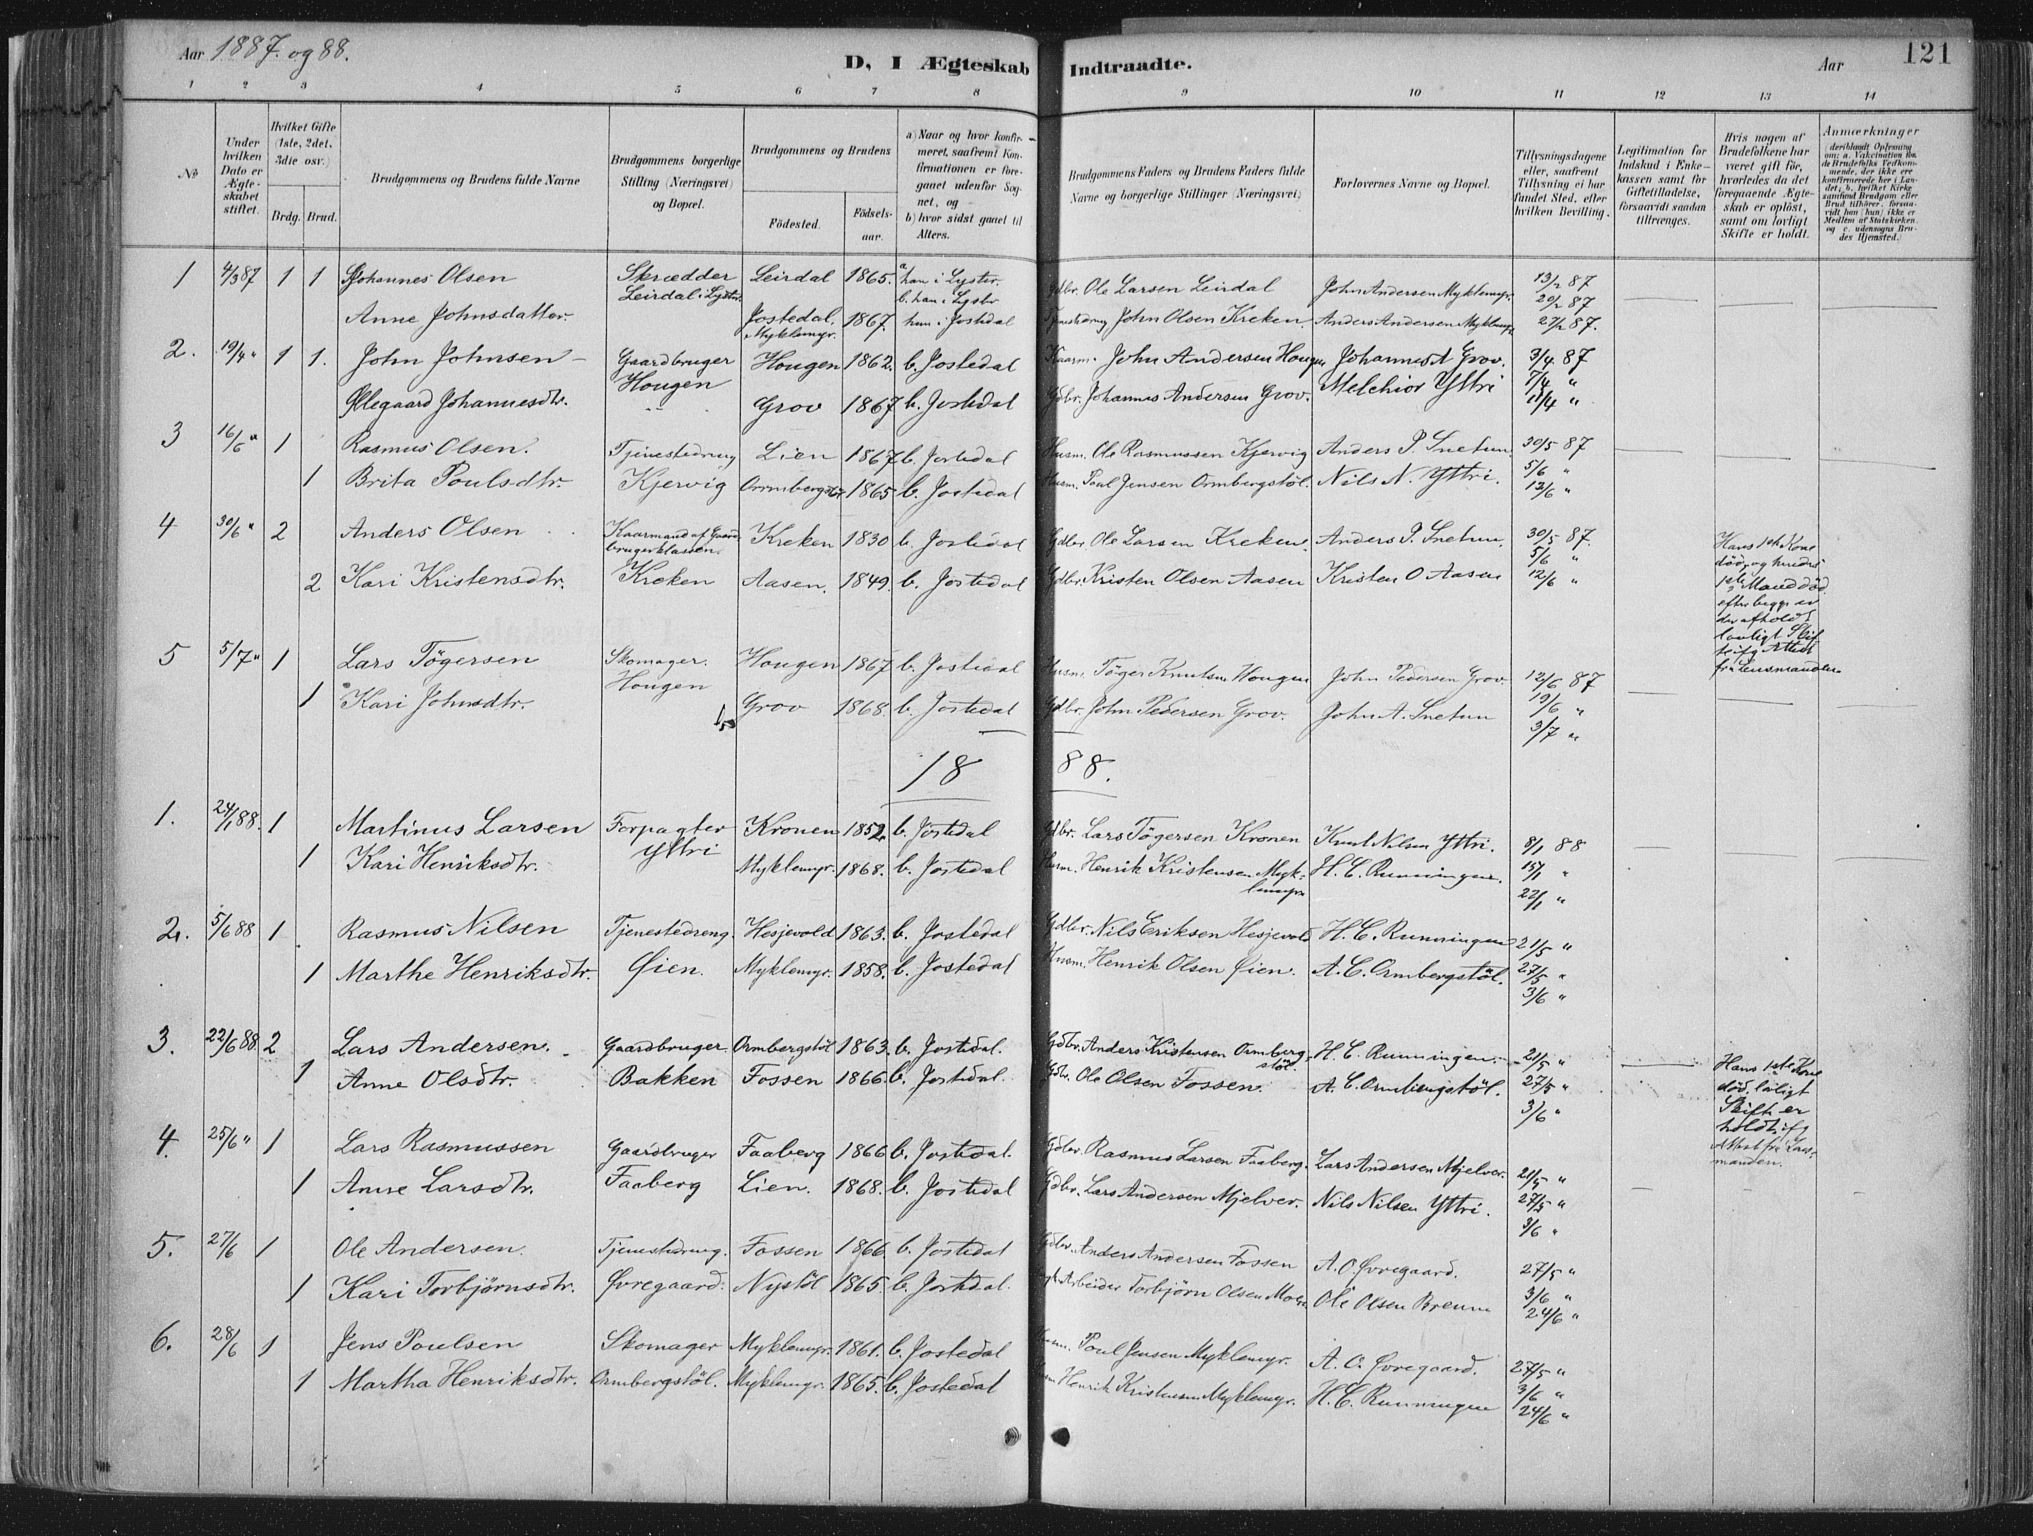 Aar 1887. og 88.
D, I Ægteskab Indtraadte.
Aar
121
1 2 3 4 5 6 7 8 9 10 11 12 13 14
No
Under hvilken Dato er Ægteskabet stiftet.
Hvilket Gifte (1ste, 2det, 3die osv.)
Brdg. Brud.
Brudgommens og Brudens fulde Navne
Brudgommens borgerlige Stilling (Næringsvei) og Bopæl.
Brudgommens og Brudens
Födested.
Födselsaar.
a) Naar og hvor konfirmeret, saafremt Konfirmationen er foregaaet udenfor Sognet, og
b) hvor sidst gaaet til Alters.
Brudgommens Faders og Brudens Faders fulde Navne og borgerlige Stillinger (Næringsvei)
Forlovernes Navne og Bopæl.
Tillysningsdagene eller, saafremt Tillysning ei har fundet Sted, efter hvilken Bevilling.
Legitimation for Indskud i Enkekassen samt for Giftetilladelse, forsaavidt saadan tiltrænges.
Hvis nogen af Brudefolkene har været gift för, hvorledes da det foregaaende Ægteskab er oplöst, samt om lovligt Skifte er holdt.
Anmærkninger
1 4/3 87 1 1 Johannes Olsen Skrædder Leirdal 1865. a. han i Lyster. Gdbr. Ole Larsen Leirdal John Andersen Myklemyr. 13/2 87
Leirdal i Lyster b. han i Lyster 20/2 87
Anne Johnsdatter. Jostedal, Myklemyr. 1867. hun i Jostedal John Olsen Kreken Anders Andersen Myklemyr 27/2 87.
2. 19/4 " 1 1. John Johnsen Gaardbruger Hougen 1862. b. Jostedal Kaarm. John Andersen Hougen Johannes A Grov. 3/4. 87
Hougen Melchior Yttri 7/4 "
Øllegaard Johannesdtr. Grov 1867 b. Jostedal Gdbr. Johannes Andersen Grov. 11/4 "
3 16/6 " 1 Rasmus Olsen. Tjenestedreng Lien 1867 b. Jostedal Husm. Ole Rasmussen Kjervig Anders P. Snetun 30/5 87
5/6 "
1 Brita Poulsdtr. Kjervig Ormbergstøl 1865 b. Jostedal Husm. Poul Jensen Ormbergstöl. Nils N. Yttri. 12/6 "
4 30/6 " 2 Anders Olsen Kaarmand af Gaardbrugerklassen. Kreken 1830 b. Jostedal Gdbr. Ole Larsen Kreken. Anders P. Snetun. 30/5 87.
5/6 "
2 Kari Kristensdtr. Kreken Aasen. 1849. b. Jostedal Gdbr. Kristen Olsen Aasen Kristen O Aasen 12/6 "
Hans 1ste Kone
död, og hendes
1ste Mand död
efter begge er
der afholdt
lovligt Skif
te ifg. Attest
fra Lensmanden
5 5/7 " 1 Lars Tögersen Skomager. Hougen 1867 b. Jostedal Husm. Töger Knutsen Hougen John Pedersen Grov. 12/6 87
Hougen 19/6 "
1 Kari Johnsdtr. Grov 1868. b. Jostedal Gdbr. John Pedersen Grov. John A. Snetun 3/7 "
18 88.
1. 24/1 88. 1 Martinus Larsen Forpagter Kronen 1852 b. Jostedal Gdbr. Lars Tögersen Kronen Knut Nilsen Yttri. 8/1 88
Yttri 15/1 "
1 Kari Henriksdtr. Myklemyr. 1868. b. Jostedal Husm. Henrik Kristensen Myklemyr H. C. Runningen. 22/1 "
2. 5/6 88 1 Rasmus Nilsen Tjenestedreng. Hesjevold 1863. b. Jostedal Gdbr. Nils Eriksen Hesjevold H. C. Runningen 21/5 "
1 Marthe Henriksdtr. Øien. Myklemyr. 1858. b. Jostedal Husm. Henrik Olsen Øien. A. C. Ormbergstöl. 27/5 "
3/6 "
3. 22/6 88. 2 Lars Andersen. Gaardbruger Ormbergstöl 1863. b. Jostedal. Gdbr. Anders Kristensen Ormbergstöl. H. C. Runningen. 21/5 "
1 Anne Olsdtr. Bakken Fossen 1866. b. Jostedal. Gdbr. Ole Olsen Fossen. A. C. Ormbergstöl. 27/5 "
3/6 "
Hans 1ste Kone
död. Lovligt
Skifte er
holdt, ifg
Attest fra Lens-
manden.
4. 25/6 " 1 Lars Rasmussen Gaardbruger Faaberg 1866 b. Jostedal. Gdbr. Rasmus Larsen Faaberg. Lars Andersen Mjelver. 21/5 "
1 Anne Larsdtr. Faaberg Lien. 1868. b. Jostedal Gdbr. Lars Andersen Mjelver. Nils Nilsen Yttri. 27/5 "
3/6 "
5. 27/6 1 Ole Andersen. Tjenestedreng. Fossen 1866 b. Jostedal Gdbr. Anders Andersen Fossen A. O. Øvregaard. 27/5 "
3/6 "
1 Kari Torbjørnsdtr. Øvregaard. Nystöl 1865. b. Jostedal. Arbeider Torbjørn Olsen Ole Olsen Breum 24/6 "
6. 28/6 1 Jens Poulsen Skomager Myklemyr. 1861. b. Jostedal Husm. Poul Jensen Myklemyr. A. O. Øvregaard. 27/5 "
3/6 "
1 Martha Henriksdtr. Ormbergstöl. Myklemyr. 1865. b. Jostedal Henrik Kristensen Myklemyr. H. C. Runningen 24/6 "